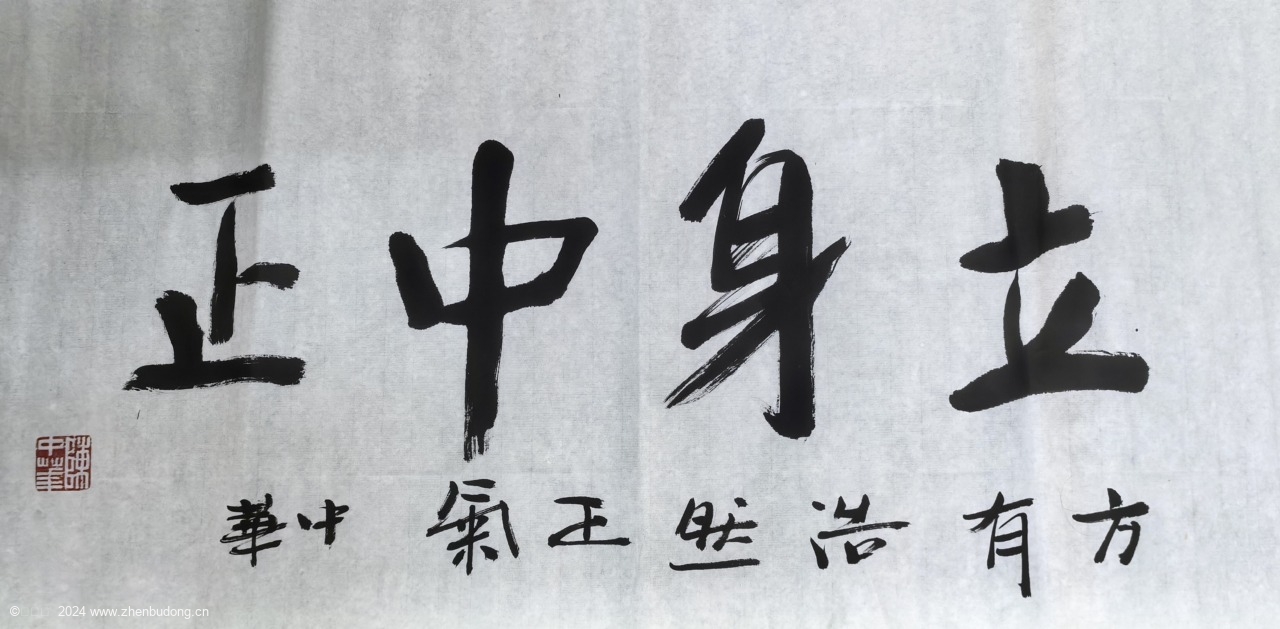 立身中正
方有浩然正氣 中華
陳中華
© 2024 www.zhenbudong.cn